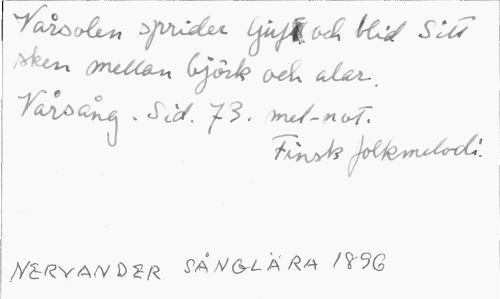 Vårsolen sprider ljuf och blid Sitt
sken mellan björk och alar.
Vårsång. Sid. 73. mel-not.
Finsk folkmelodi.
NERVANDER SÅNGLÄRA 1896